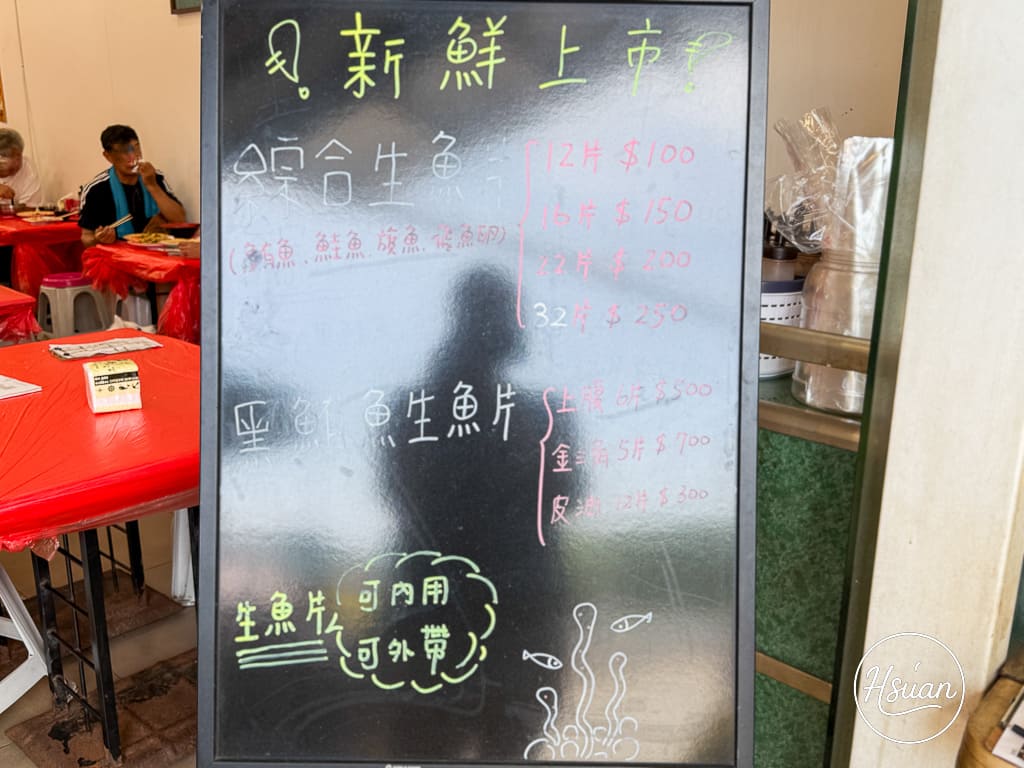 新鮮上市
綜合生魚片
12片 $100
16片 $150
22片 $200
32片 $250
(鮪魚.鮭魚.旗魚.
黑鮪魚生魚片
上腹 6片 $500
金三角 5片 $700
皮油 12片 $300
生魚片
可內用
可外帶
Hsúan